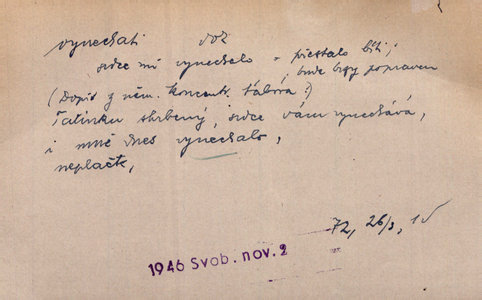 vynechati dož
srdce mi vynechalo = přestalo bíti;
bude brzy popraven
(Dopis z něm. koncentr. tábora?)
Tatínku skrbený, srdce vám vynechává,
i mně dnes vynechalo,
neplačte,
72, 26/3, 1
1946 Svob. nov. 2